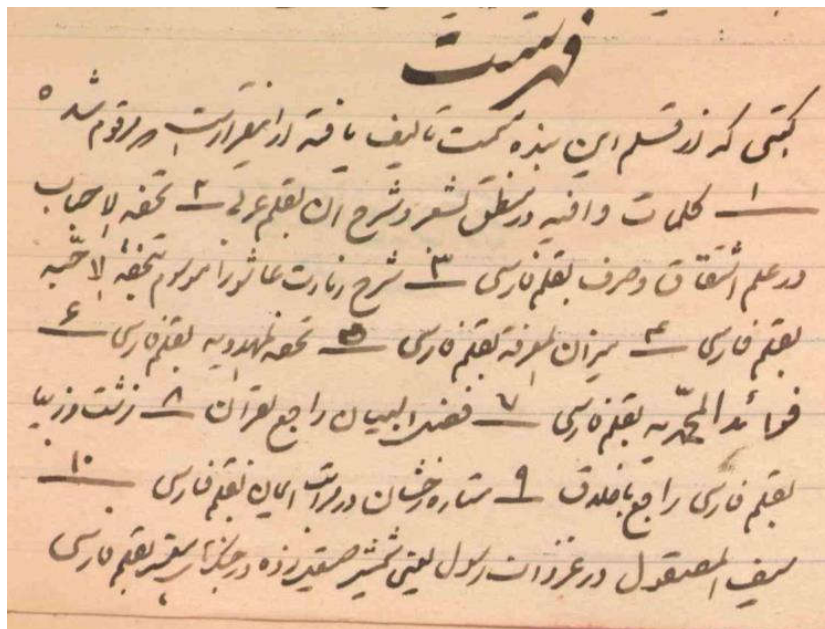 فهرست
کتبی که از قلم این بنده سمت تالیف یافته از اینقرار است مرقوم شده
۱ کلمات وافیه در منطق شعر و شرح آن بقلم عربی ۲ تحفه الاحباب
در علم اشتقاق و صرف بقلم فارسی ۳ شرح زیارت عاشورا موسوم بتحفة الاحبه
بقلم فارسی ۴ میزان المعرفة بقلم فارسی ۵ تحفه المهدویه بقلم فارسی ۶
فوائد المحمدیه بقلم فارسی ۷ فضل البیان راجع بقران ۸ زشت و زیبا
بقلم فارسی راجع باخلاق ۹ ستاره رخشان در مراتب ایمان بقلم فارسی ۱۰
سیف المصقول در غزوات رسول یعنی شمشیر صیقل زده در جنگهای پیغمبر بقلم فارسی